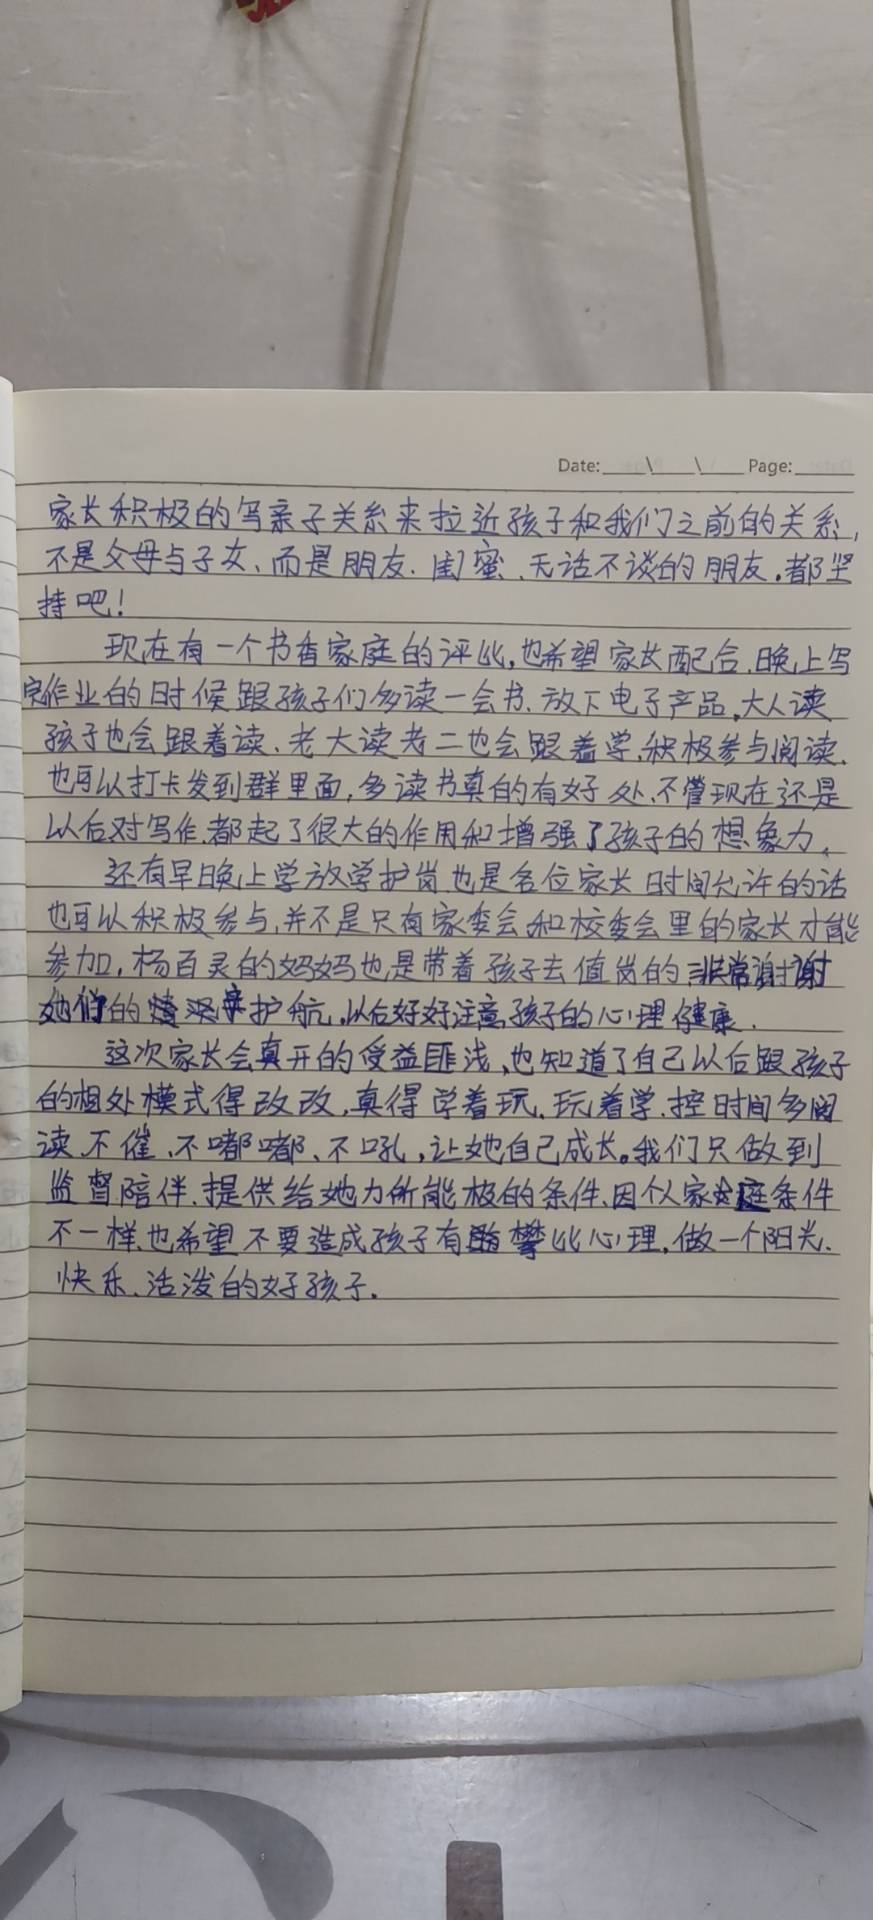 Date: \ \ Page:
家长积极的写亲子关系来拉近孩子和我们之前的关系,
不是父母与子女、而是朋友、闺蜜、无话不谈的朋友。都坚
持吧!
现在有一个书香家庭的评比,也希望家长配合,晚上写
完作业的时候跟孩子们多读一会书、放下电子产品,大人读
孩子也会跟着读、老大读老二也会跟着学,积极参与阅读、
也可以打卡发到群里面,多读书真的有好处、不管现在还是
以后对写作,都起了很大的作用和增强了孩子的想象力。
还有早晚上学放学护岗也是各位家长时间允许的话
也可以积极参与,并不是只有家委会和校委会里的家长才能
参加,杨百灵的妈妈也是带着孩子去值岗的,非常谢谢
她们的 护航,以后好好注意孩子的心理健康.
这次家长会真开的受益匪浅,也知道了自己以后跟孩子
的相处模式得改改,真得学着玩、玩着学,控时间多阅
读、不催、不嘟嘟、不吼,让她自己成长。我们只做到
监督陪伴、提供给她力所能极的条件、因个人家庭条件
不一样,也希望不要造成孩子有 攀比心理,做一个阳光、
快乐、活泼的好孩子.